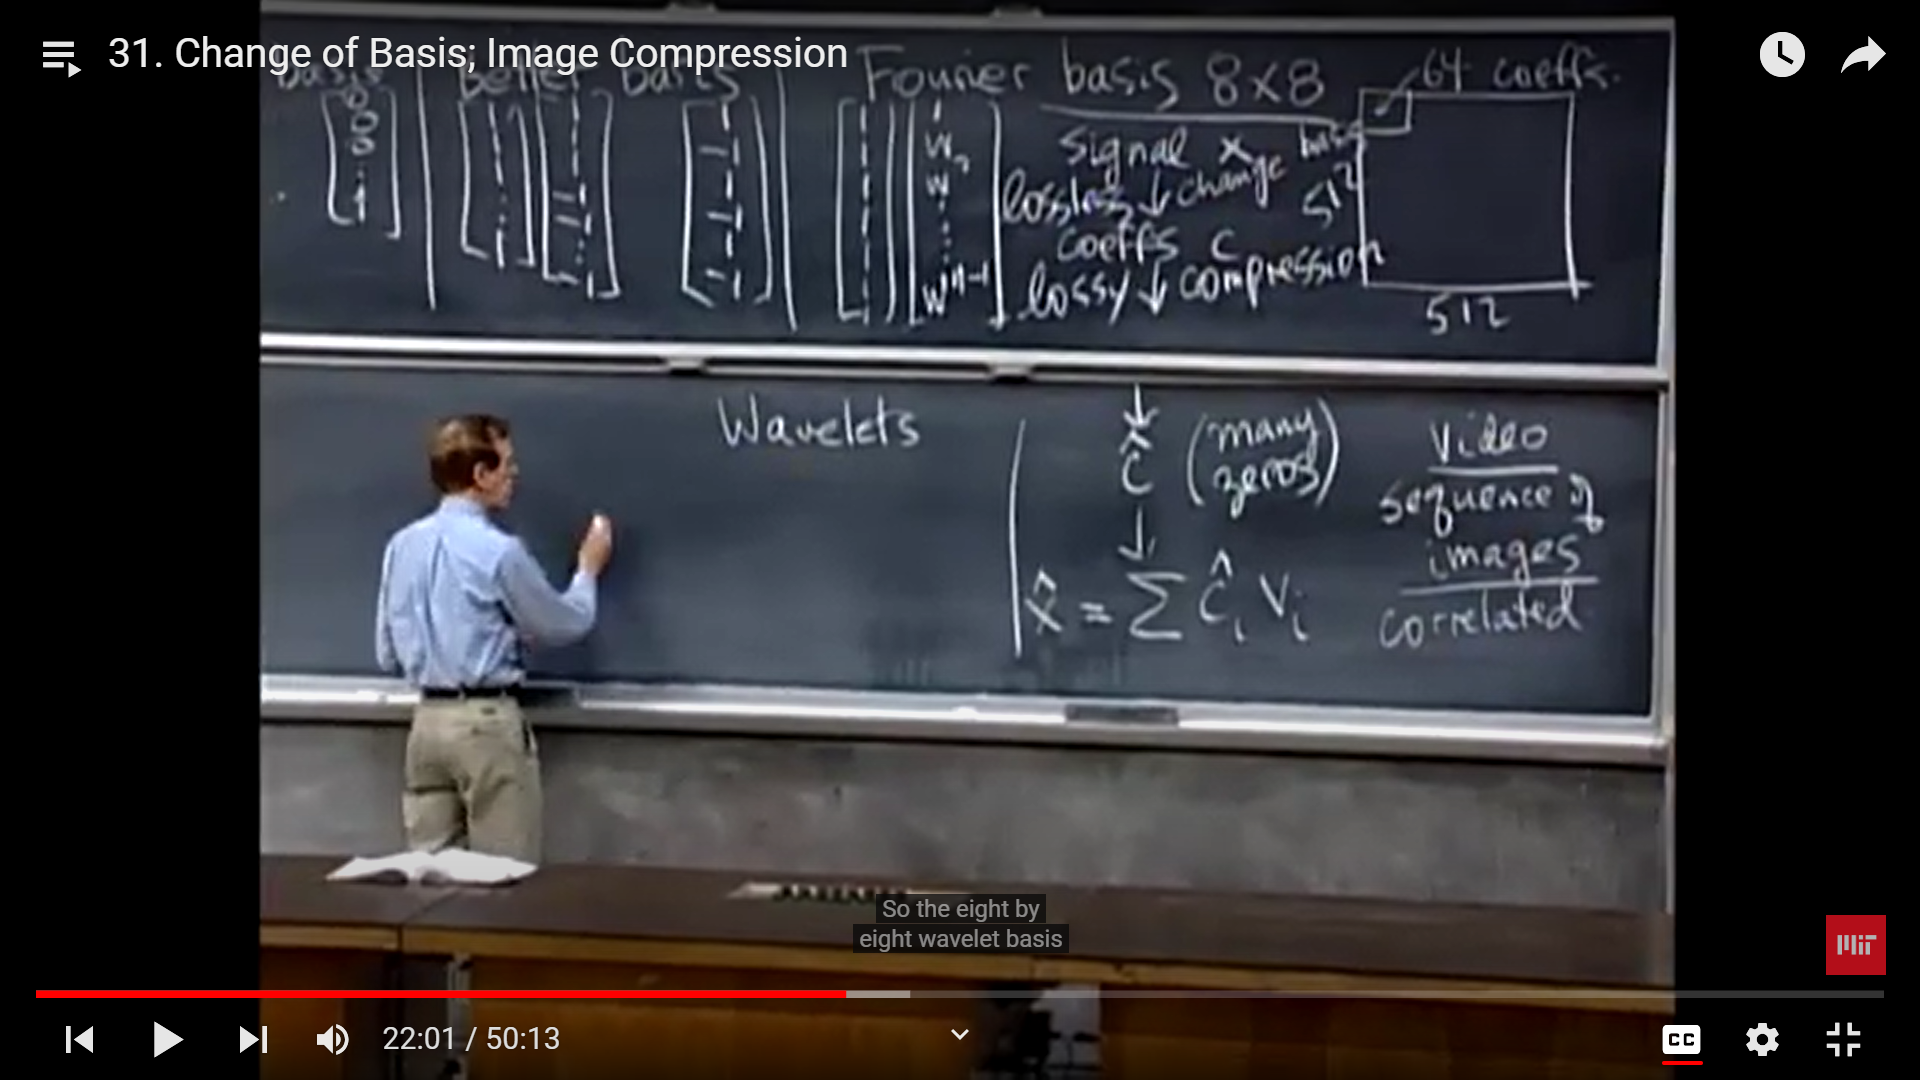 31. Change of Basis; Image Compression
basis
better basis
Fourier basis 8x8
64 coeffs.
0
0
0
⋮
1
1
⋮
1
1
⋮
-1
-1
⋮
-1
1
-1
1
-1
1
-1
1
⋮
1
1
W
W²
⋮
Wⁿ⁻¹
signal x
lossless ↓ change basis
coeffs c
lossy ↓ compression
512
512
Wavelets
↓
ĉ (many zeros)
↓
x̂ = Σ ĉᵢ vᵢ
Video
sequence of
images
correlated
So the eight by
eight wavelet basis
MIT
22:01 / 50:13
CC